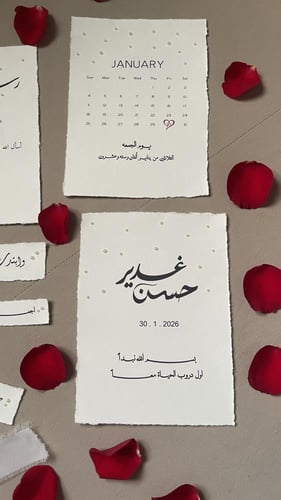 JANUARY
Sun Mon Tue Wed Thu Fri Sat
1 2 3
4 5 6 7 8 9 10
11 12 13 14 15 16 17
18 19 20 21 22 23 24
25 26 27 28 29 31
يـوم الجمعه
الثلاثين من يناير ألفان وستة وعشرون
أسأل الله
غدير
حسن
30 . 1 . 2026
بسم الله نبدأ
اول دروب الحياة معاً